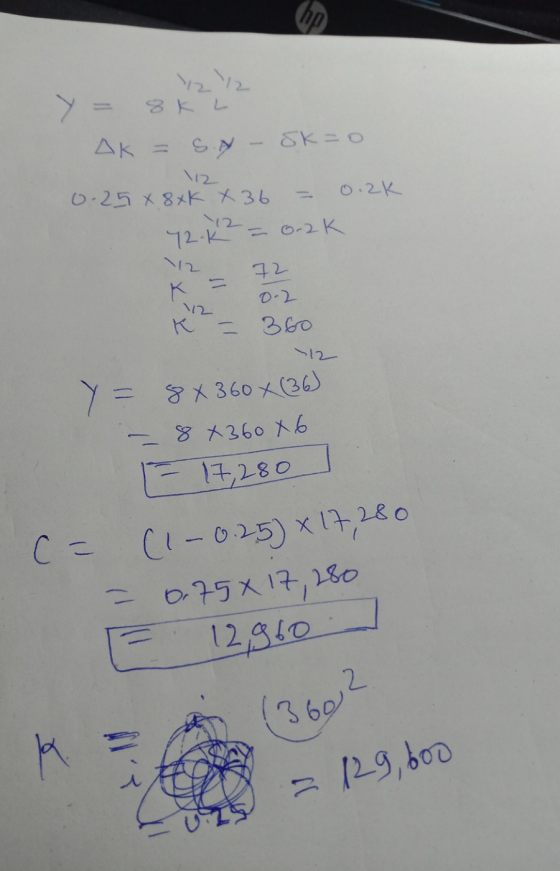 hp
Y = 8K^1/2 L^1/2
ΔK = s.y - δK = 0
0.25 × 8 × K^1/2 × 36 = 0.2K
72.K^1/2 = 0.2K
K^1/2 = 72/0.2
K^1/2 = 360
Y = 8 × 360 × (36)^1/2
= 8 × 360 × 6
= 17,280
C = (1 - 0.25) × 17,280
= 0.75 × 17,280
= 12,960
K = (360)^2
= 129,600
= 0.25